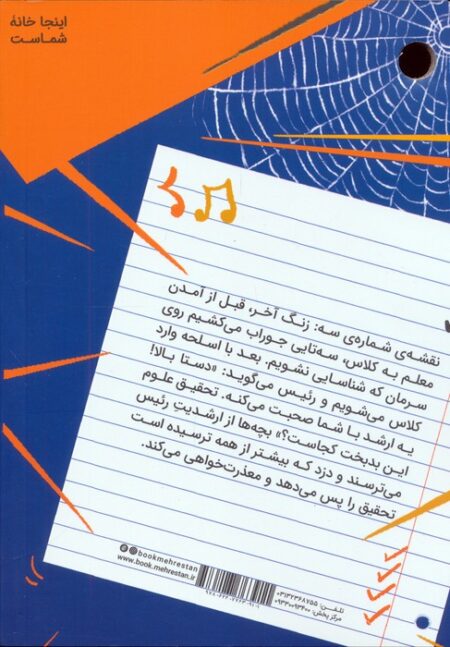 اینجا خانهٔ
شماست
نقشه‌ی شماره‌ی سه: زنگ آخر، قبل از آمدن
معلم به کلاس، سه‌تایی جوراب می‌کشیم روی
سرمان که شناسایی نشویم. بعد با اسلحه وارد
کلاس می‌شویم و رئیس می‌گوید: «دستا بالا!
یه ارشد با شما صحبت می‌کنه. تحقیق علوم
این بدبخت کجاست؟» بچه‌ها از ارشدیتِ رئیس
می‌ترسند و دزد که بیشتر از همه ترسیده است
تحقیق را پس می‌دهد و معذرت‌خواهی می‌کند.
bookmehrestan
www.book.mehrestan.ir
تلفن: ۰۳۱۳۲۳۶۸۷۵۵
مرکز پخش: ۰۹۳۲۰۰۹۳۴۰۰